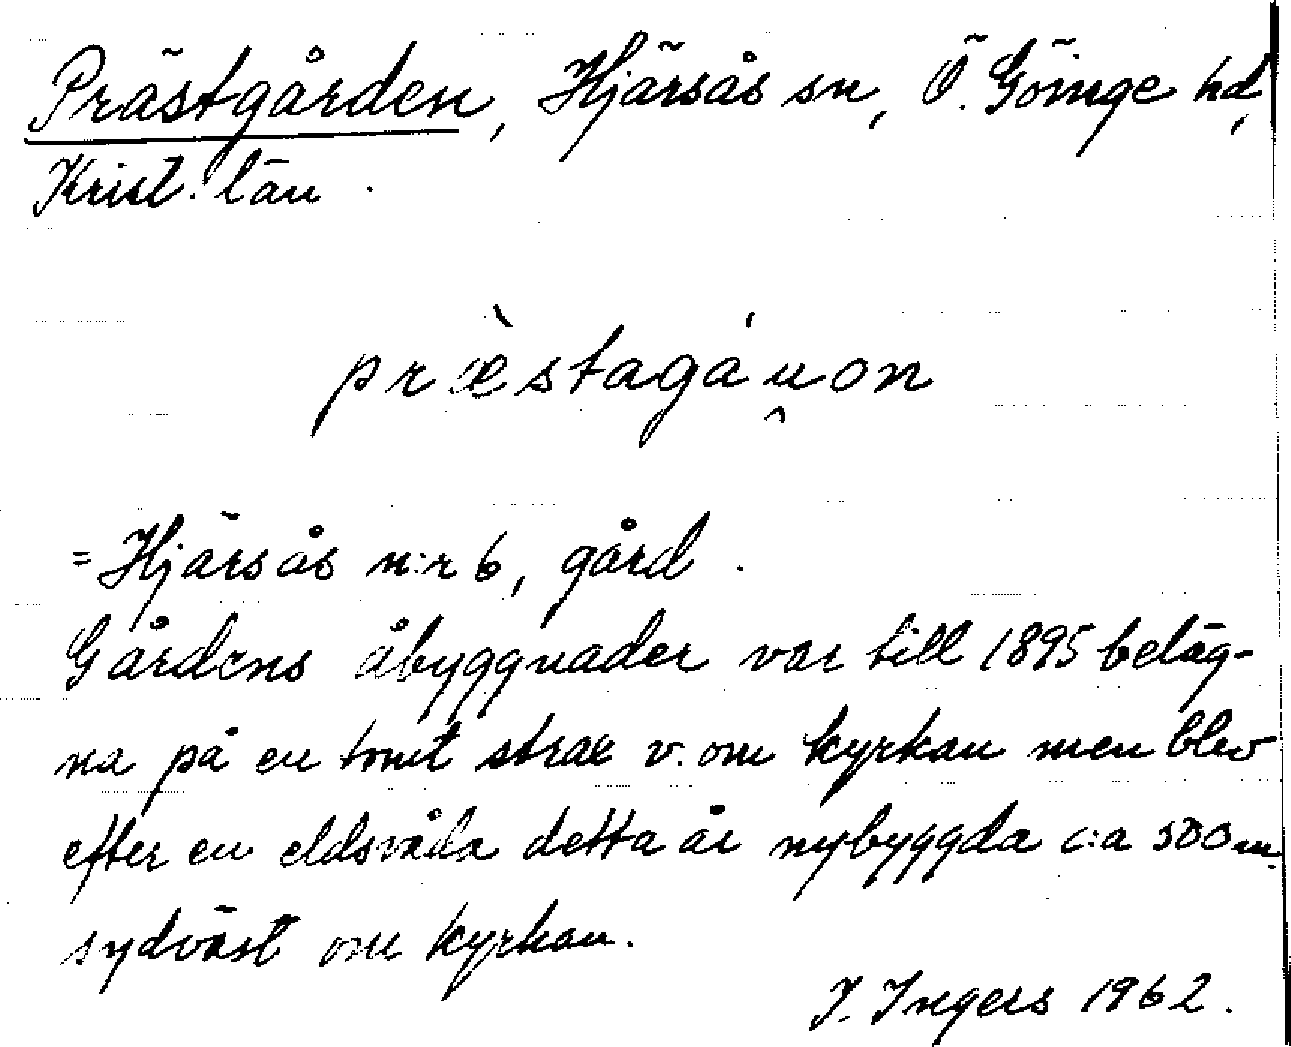 Prästgården, Hjärsås sn, Ö. Göinge hd,
Krist. län.
præ̀stagáu̯on
= Hjärsås n:r 6, gård.
Gårdens åbyggnader var till 1895 beläg-
na på en tomt strax v. om kyrkan men blev
efter en eldsvåda detta år nybyggda c:a 500 m
sydväst om kyrkan.
I. Ingers 1962.